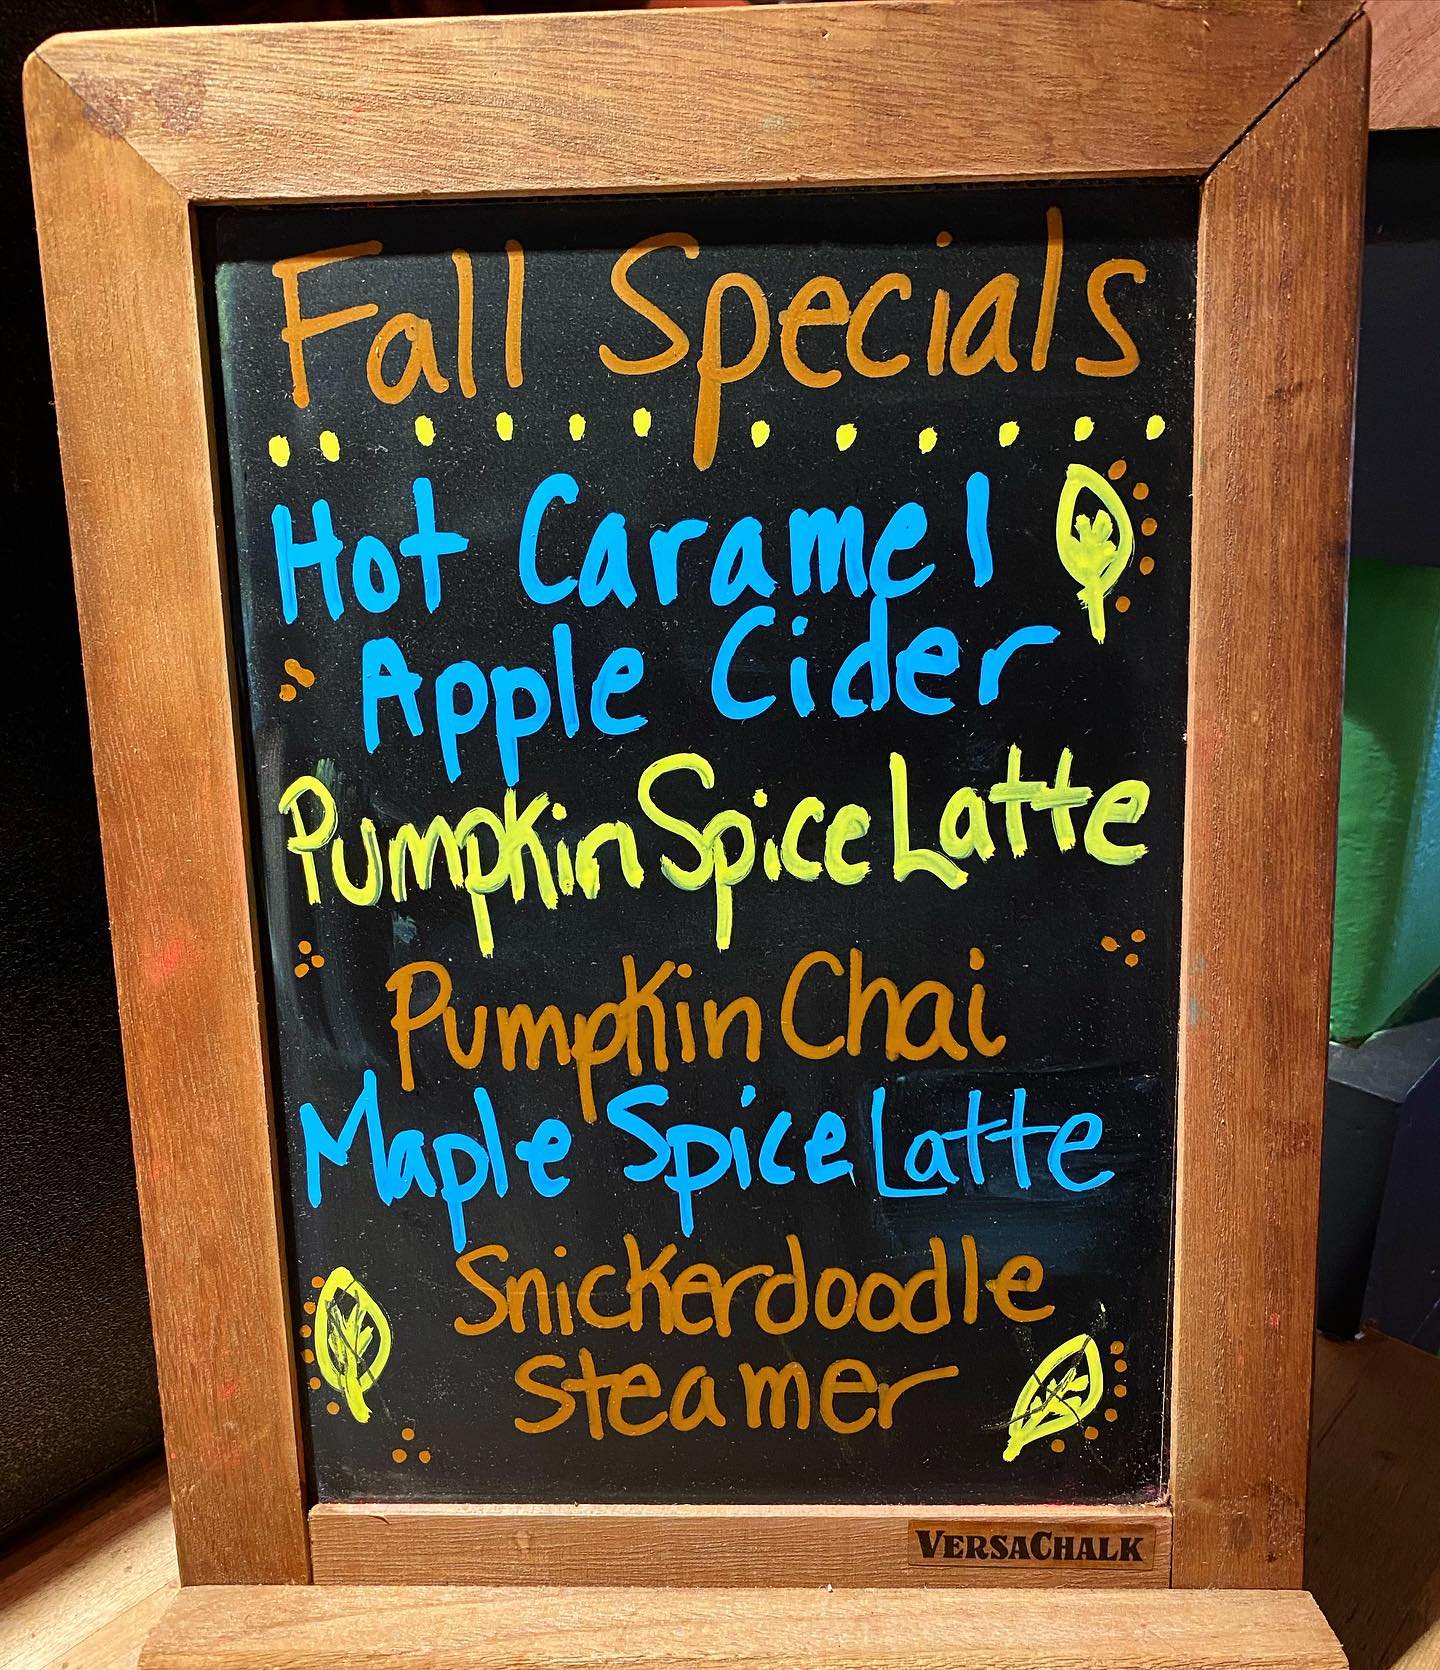 Fall Specials
Hot Caramel
Apple Cider
Pumpkin Spice Latte
Pumpkin Chai
Maple Spice Latte
Snickerdoodle
Steamer
VERSACHALK